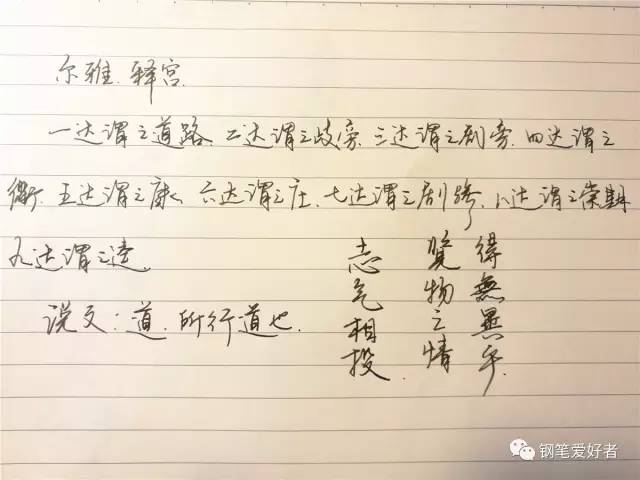 尔雅.释宫.
一达谓之道路、二达谓之歧旁、三达谓之剧旁、四达谓之
衢、五达谓之康、六达谓之庄、七达谓之剧骖、八达谓之崇期
九达谓之逵.
说文:道.所行道也.
志气相投.
览物之情
得無異乎.
钢笔爱好者